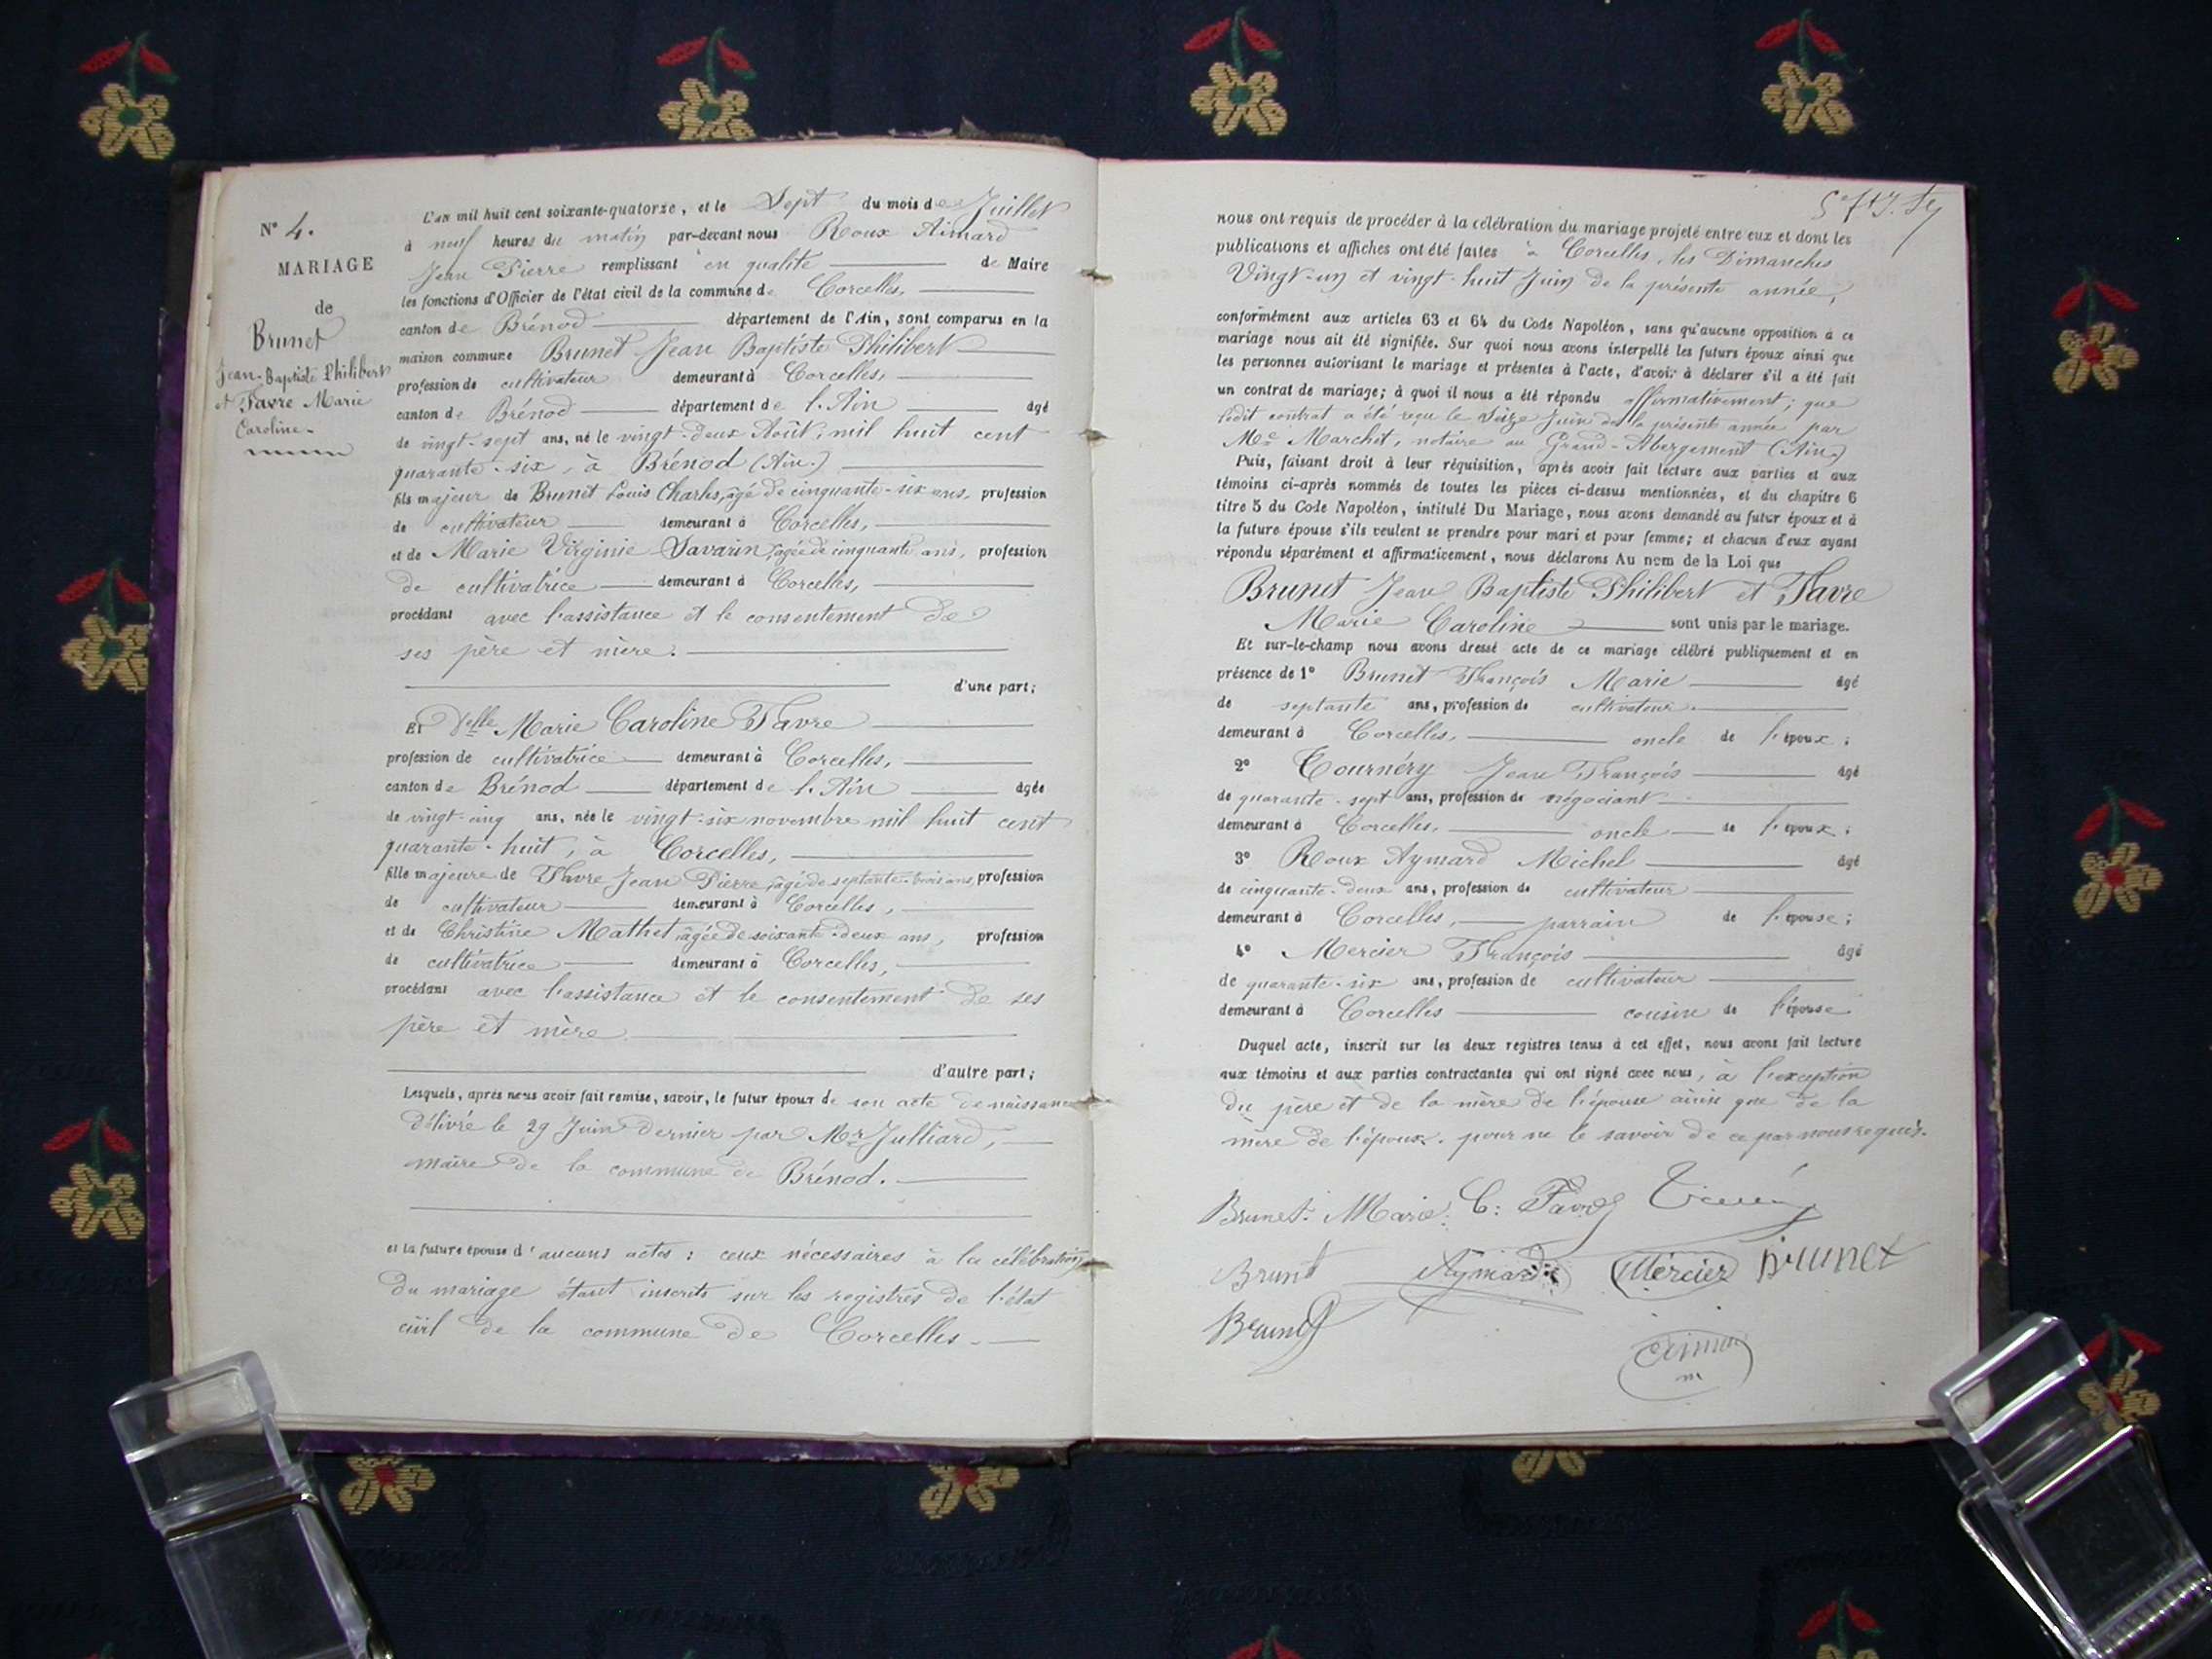 N° 4.
MARIAGE
de
Brunet
Jean-Baptiste Philibert
et Favre Marie
Caroline
L'an mil huit cent soixante-quatorze, et le Sept du mois de Juillet
à neuf heures du matin par-devant nous Roux Aimard
Jean Pierre remplissant en qualité de Maire
les fonctions d'Officier de l'état civil de la commune de Corcelles,
canton de Brénod département de l'Ain, sont comparus en la
maison commune Brunet Jean Baptiste Philibert
profession de cultivateur demeurant à Corcelles,
canton de Brénod département de l'Ain âgé
de vingt-sept ans, né le vingt-deux Août, mil huit cent
quarante-six, à Brénod (Ain.)
fils majeur de Brunet Louis Charles, âgé de cinquante-six ans, profession
de cultivateur demeurant à Corcelles,
et de Marie Virginie Savarin, âgée de cinquante ans, profession
de cultivatrice demeurant à Corcelles,
procédant avec l'assistance et le consentement de
ses père et mère.
d'une part;
Et Delle Marie Caroline Favre
profession de cultivatrice demeurant à Corcelles,
canton de Brénod département de l'Ain âgée
de vingt-cinq ans, née le vingt-six novembre mil huit cent
quarante-huit, à Corcelles,
fille majeure de Favre Jean Pierre, âgé de septante-trois ans, profession
de cultivateur demeurant à Corcelles,
et de Christine Mathet, âgée de soixante-deux ans, profession
de cultivatrice demeurant à Corcelles,
procédant avec l'assistance et le consentement de ses
père et mère
d'autre part;
Lesquels, après nous avoir fait remise, savoir, le futur époux de son acte de naissance
délivré le 29 Juin dernier par Mr Julliard,
maire de la commune de Brénod.
et la future épouse d'aucuns actes: ceux nécessaires à la célébration
du mariage étant inscrits sur les registres de l'état
civil de la commune de Corcelles.
nous ont requis de procéder à la célébration du mariage projeté entre eux et dont les
publications et affiches ont été faites à Corcelles, les Dimanches
Vingt-un et vingt-huit Juin de la présente année,
conformément aux articles 63 et 64 du Code Napoléon, sans qu'aucune opposition à ce
mariage nous ait été signifiée. Sur quoi nous avons interpellé les futurs époux ainsi que
les personnes autorisant le mariage et présentes à l'acte, d'avoir à déclarer s'il a été fait
un contrat de mariage; à quoi il nous a été répondu affirmativement; que
ledit contrat a été reçu le Seize Juin de la présente année par
Me Marchet, notaire au Grand-Abergement (Ain)
Puis, faisant droit à leur réquisition, après avoir fait lecture aux parties et aux
témoins ci-après nommés de toutes les pièces ci-dessus mentionnées, et du chapitre 6
titre 5 du Code Napoléon, intitulé Du Mariage, nous avons demandé au futur époux et à
la future épouse s'ils veulent se prendre pour mari et pour femme; et chacun d'eux ayant
répondu séparément et affirmativement, nous déclarons Au nom de la Loi que
Brunet Jean Baptiste Philibert et Favre
Marie Caroline sont unis par le mariage.
Et sur-le-champ nous avons dressé acte de ce mariage célébré publiquement et en
présence de 1° Brunet François Marie âgé
de septante ans, profession de cultivateur.
demeurant à Corcelles, oncle de l'époux;
2° Tournéry Jean François âgé
de quarante-sept ans, profession de négociant
demeurant à Corcelles, oncle de l'époux;
3° Roux Aymard Michel âgé
de cinquante-deux ans, profession de cultivateur
demeurant à Corcelles, parrain de l'épouse;
4° Mercier François âgé
de quarante-six ans, profession de cultivateur
demeurant à Corcelles cousin de l'épouse
Duquel acte, inscrit sur les deux registres tenus à cet effet, nous avons fait lecture
aux témoins et aux parties contractantes qui ont signé avec nous, à l'exception
du père et de la mère de l'épouse ainsi que de la
mère de l'époux. pour ne le savoir de ce par nous requis.
Brunet. Marie. C: Favre
Brunet Aymard Mercier Brunet
Brunet